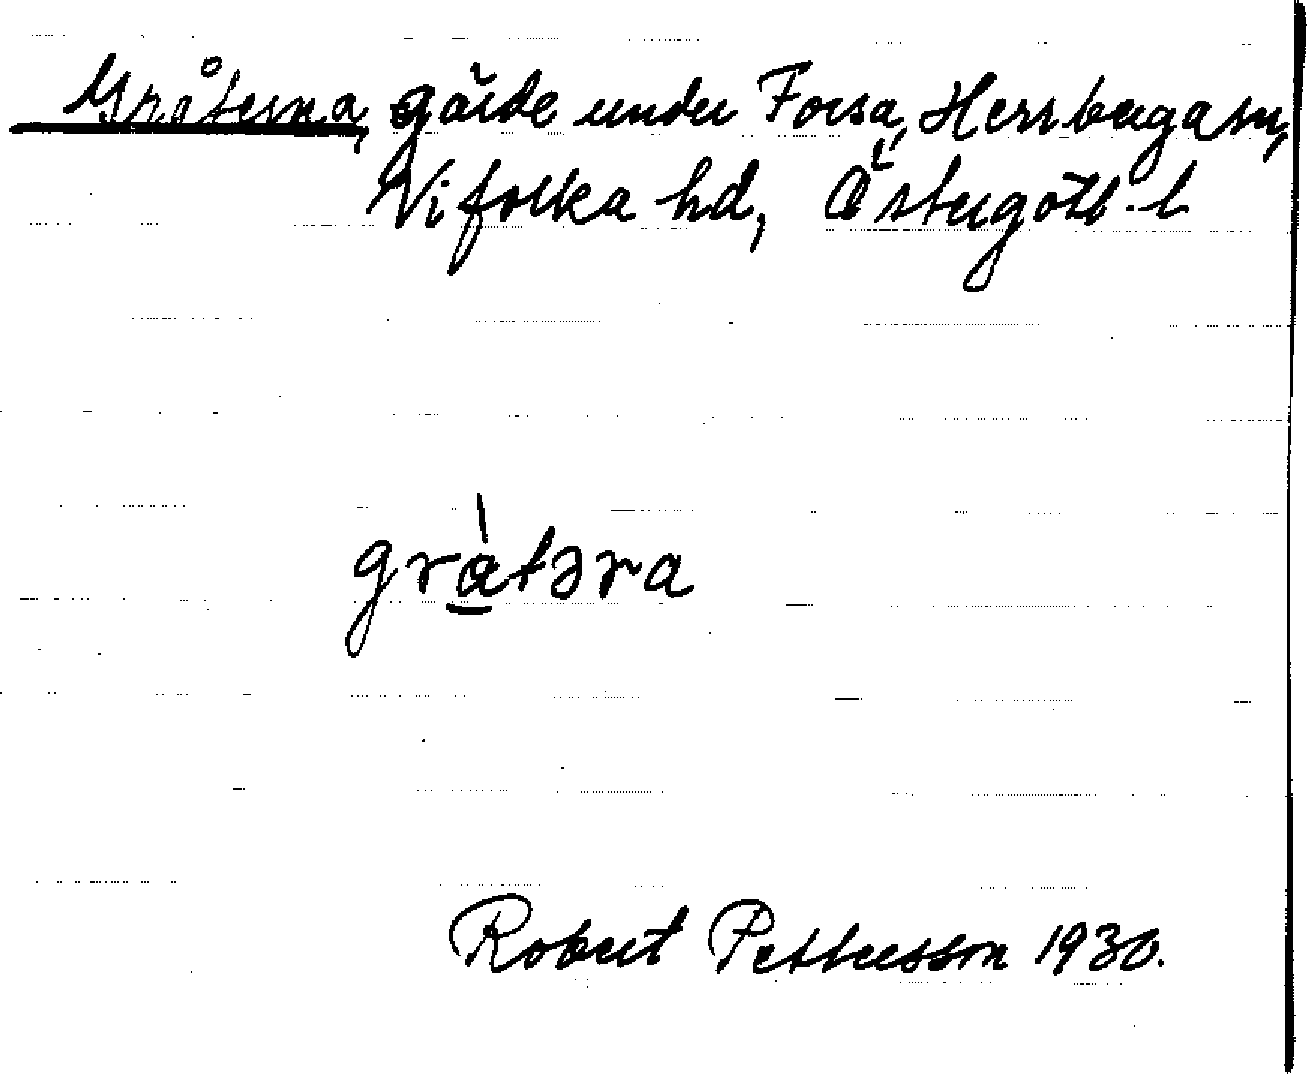 Gråterna, gärde under Forsa, Herrberga sn,
Vifolka hd, Östergötl. l
gràtəra
Robert Pettersson 1930.